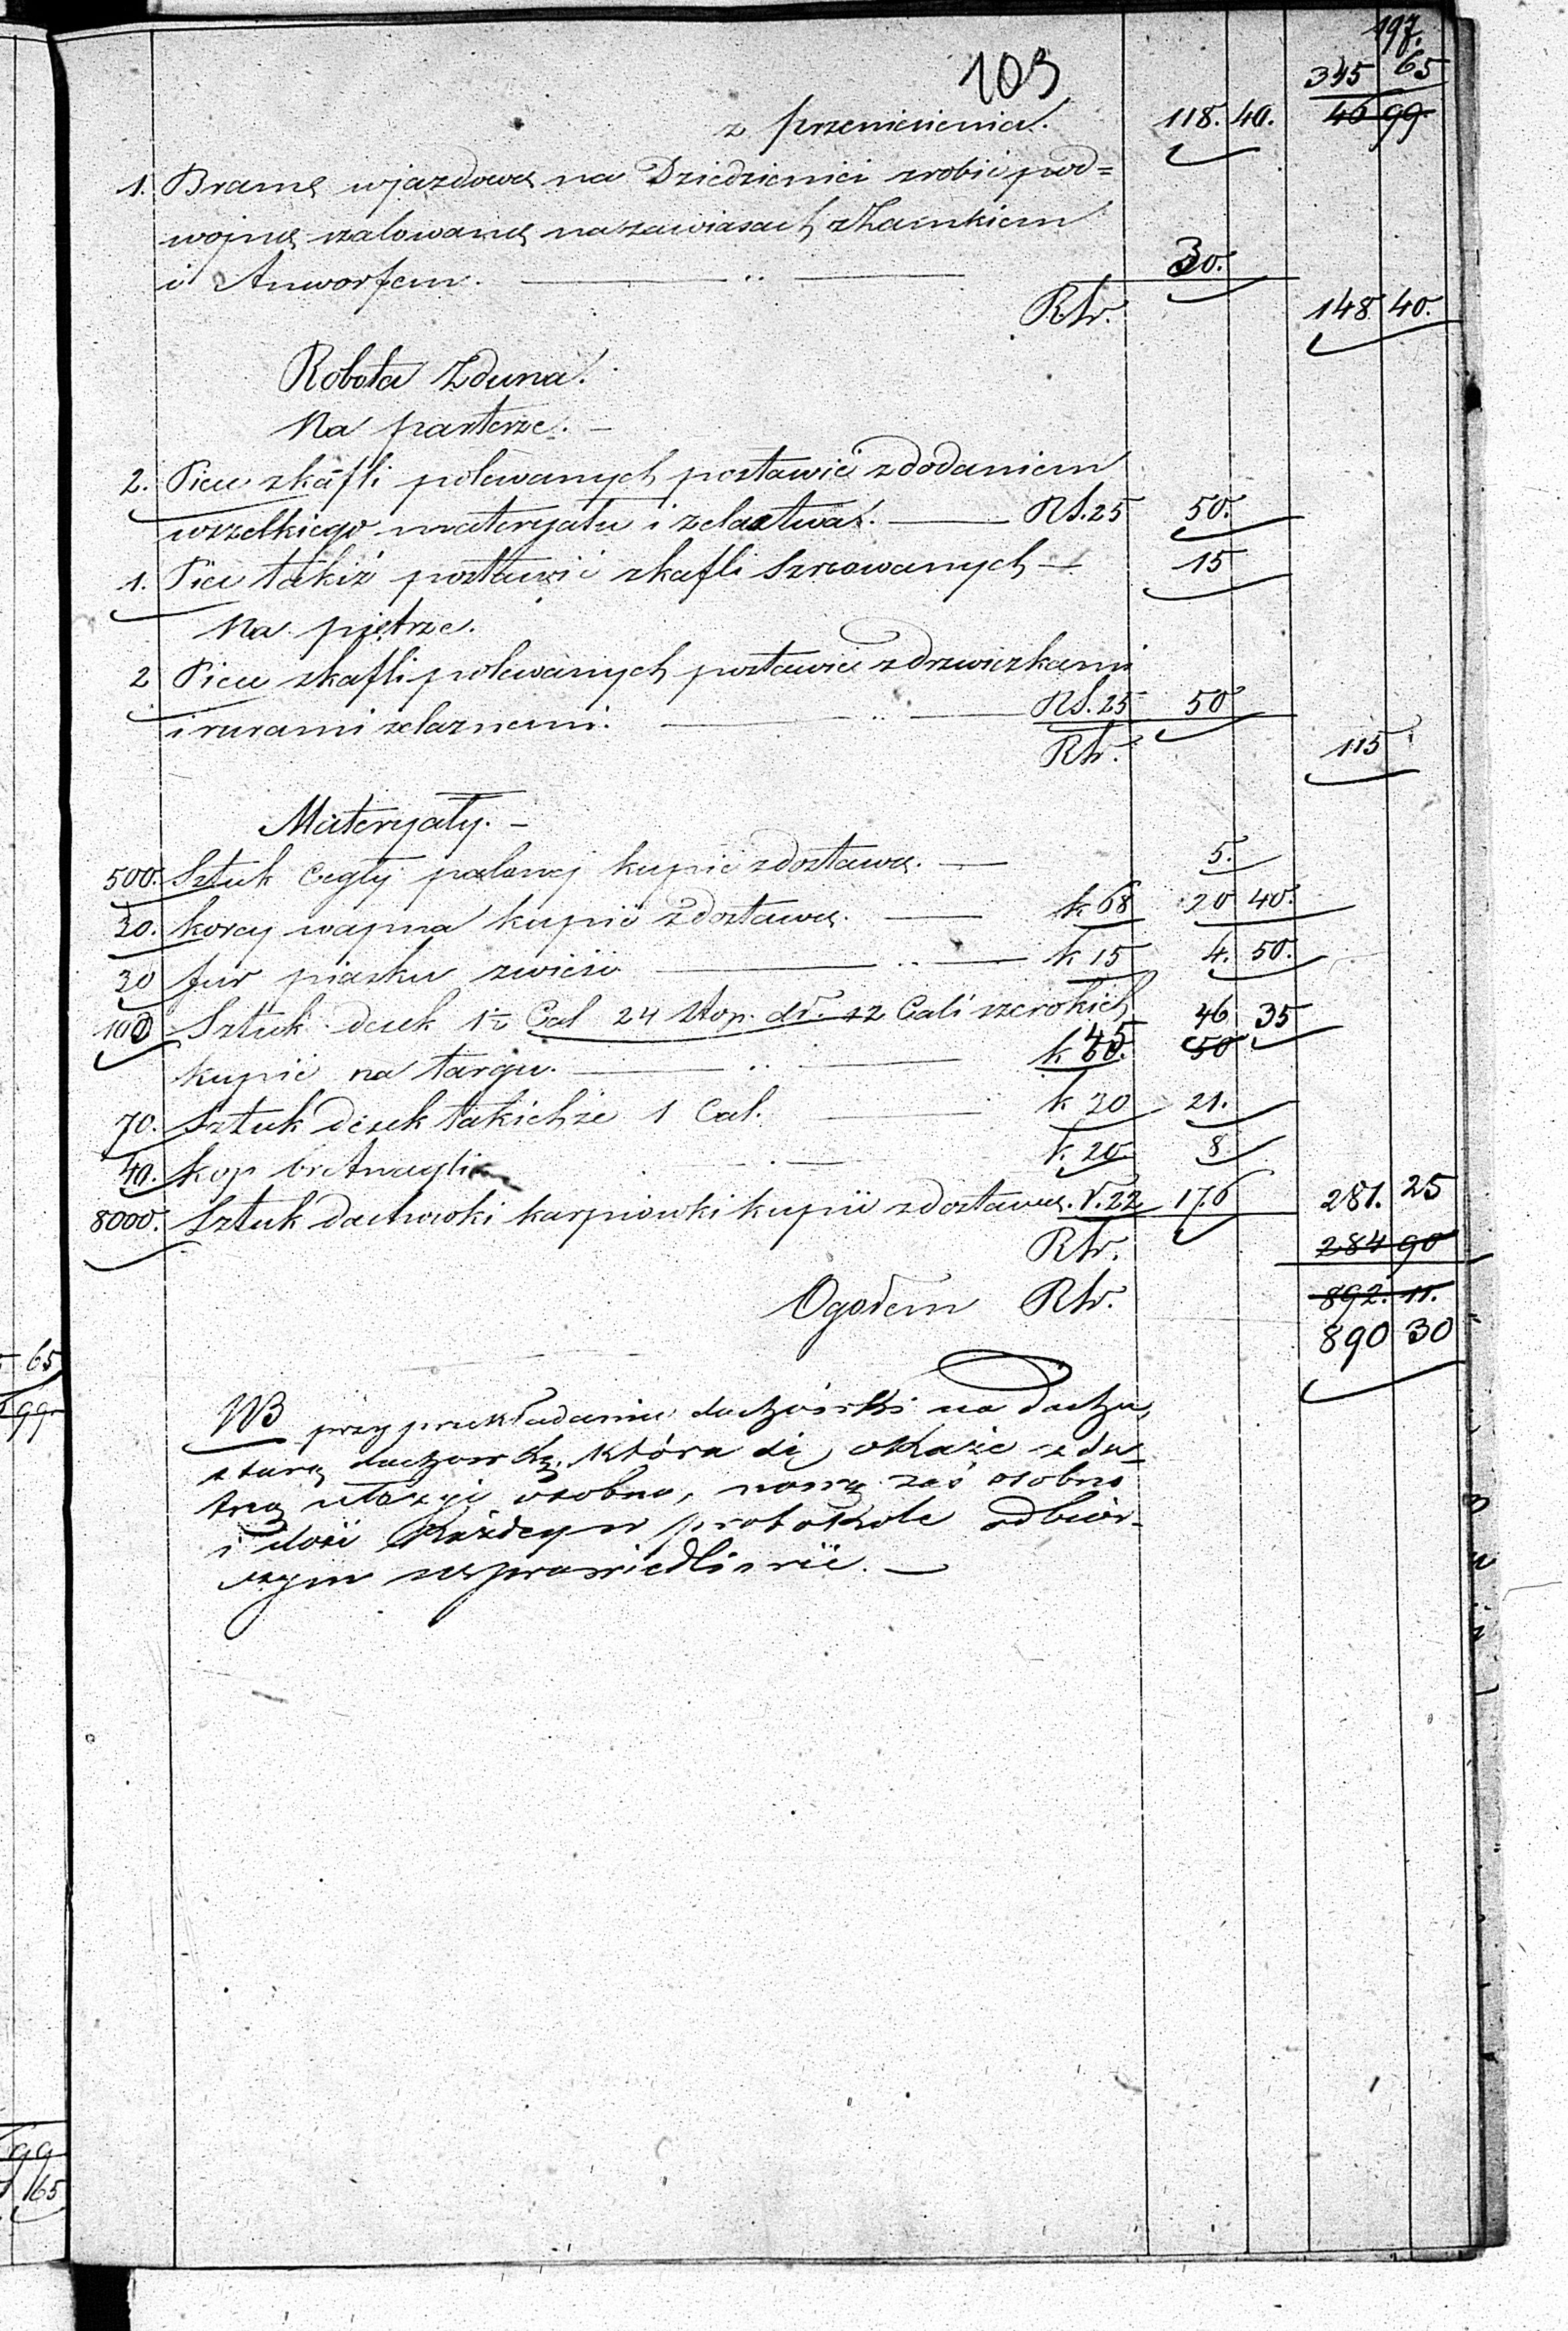 197.
103
345 65
z przeniesienia. 118. 40. 46 99.
1. Bramę wjazdową na Dziedzieniec zrobić pod=
wojną szalowaną na zawiasach z Zamkiem
i Anworfem. 30.
Rbr. 148 40.
Robota Zduna.
Na parterze.
2. Piece z kafli polewanych postawić z dodaniem
wszelkiego materyału i zelastwa. RS. 25 50.
1. Piec takiż postawić z kafli Szreowanych 15
Na piętrze.
2 Piece z kafli polewanych postawić z drzwiczkami
i rurami zelaznemi. RS. 25 50
Rbr. 115
Materyały.
500. Sztuk Cegły palonej kupić z dostawą. 5.
30. korcy wapna kupić z dostawą. k 68 20 40.
30 fur piasku zwieść k 15 4. 50.
103 Sztuk desek 1½ Cal 24 stop. dł. 12 Cali szerokich 46 35
kupić na targu. k 45 50
70. Sztuk desek takichże 1 Cal. k 30 21.
40. kop bretnagli k. 20 8
8000. Sztuk dachowki karpiowki kupić z dostawą. r. 22 176 281. 25
Rbr. 284 90
Ogołem Rbr. 892. 11.
890 30
NB przy przekładaniu dachówki na dachu,
starą dachowkę, która się okaże zda-
tną ułożyć osobno, nową zaś osobno
i ilość Każdey w protokole odbior-
czym usprawiedliwić.